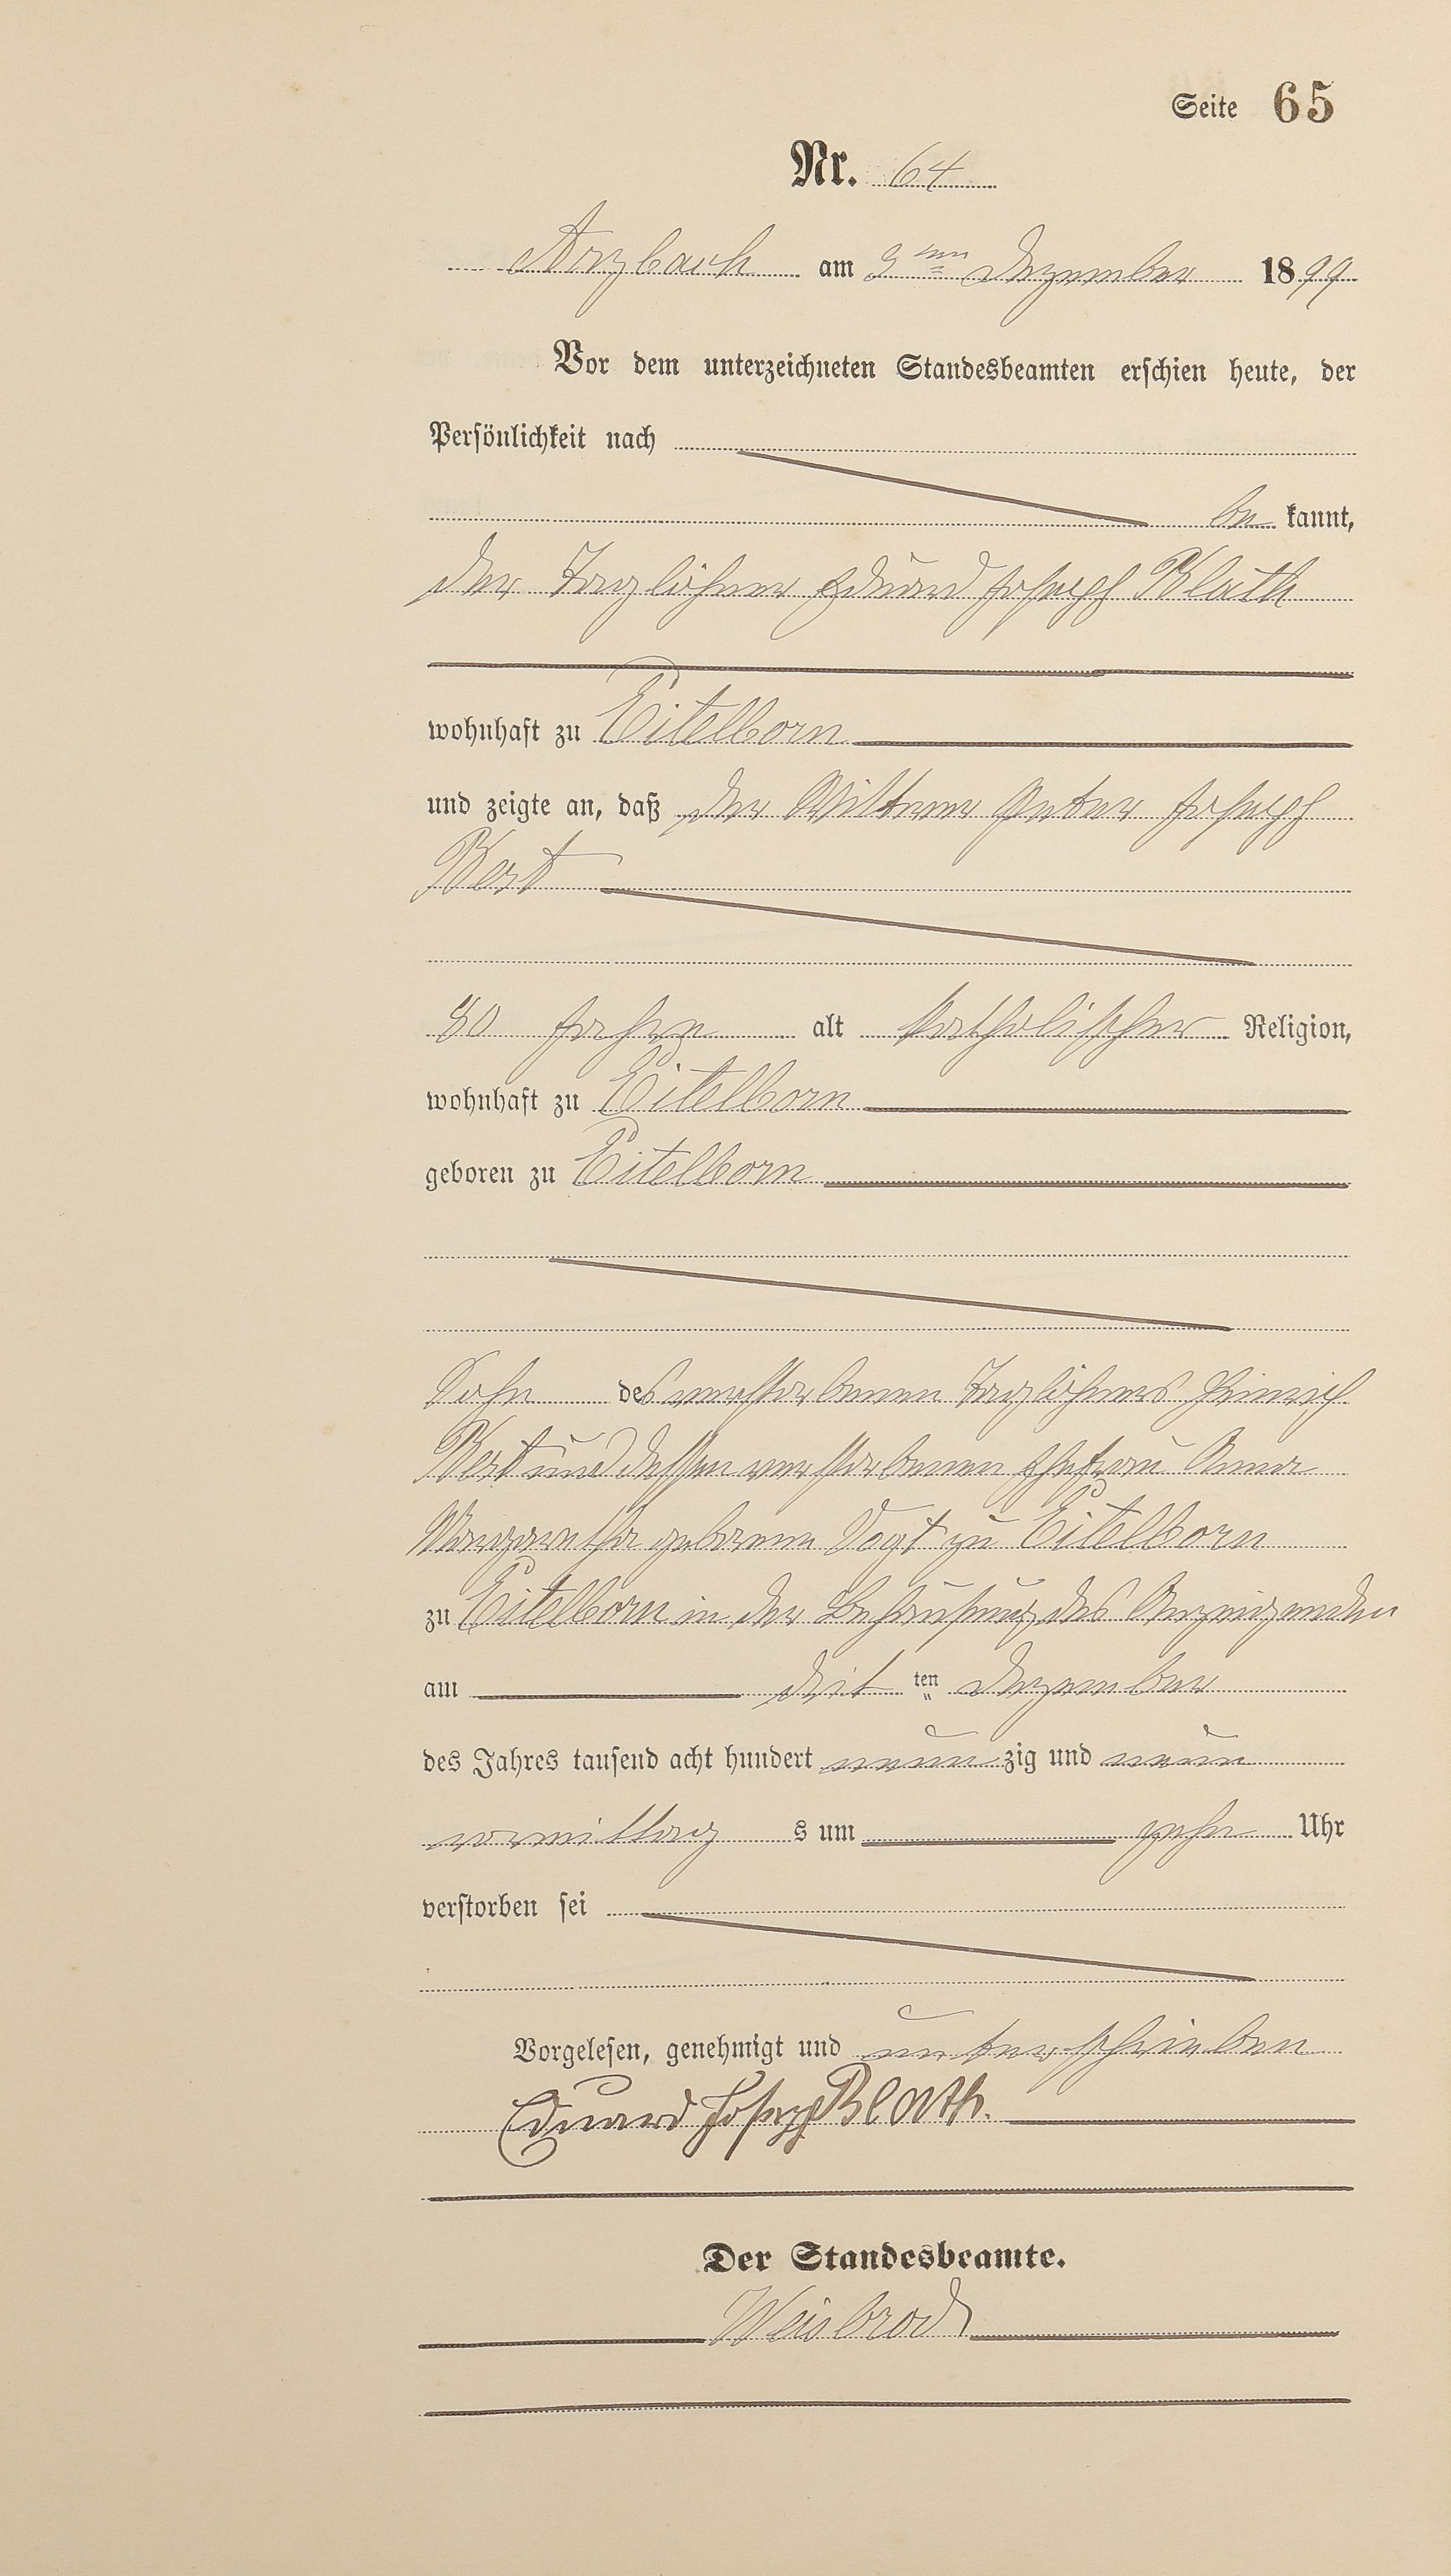 Seite 65
Nr. 64
Arzbach am 3ten Dezember 1899
Vor dem unterzeichneten Standesbeamten erschien heute, der
Persönlichkeit nach
be kannt,
der Taglöhner Eduard Joseph Blath
wohnhaft zu Eitelborn
und zeigte an, daß der Wittwer Peter Joseph
Best
80 Jahre alt katholischer Religion,
wohnhaft zu Eitelborn
geboren zu Eitelborn
Sohn des verstorbenen Taglöhners Heinrich
Best und dessen verstorbenen Ehefrau Anna
Margaretha geborene Vogt zu Eitelborn
zu Eitelborn in der Behausung des Anzeigenden
am drit ten Dezember
des Jahres tausend acht hundert neun zig und neun
vormittag s um zehn Uhr
verstorben sei
Vorgelesen, genehmigt und unterschrieben
Eduard Joseph Blath.
Der Standesbeamte.
Weisbrod